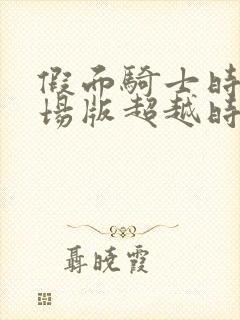 假面騎士時
場版超越時
聶曉霞